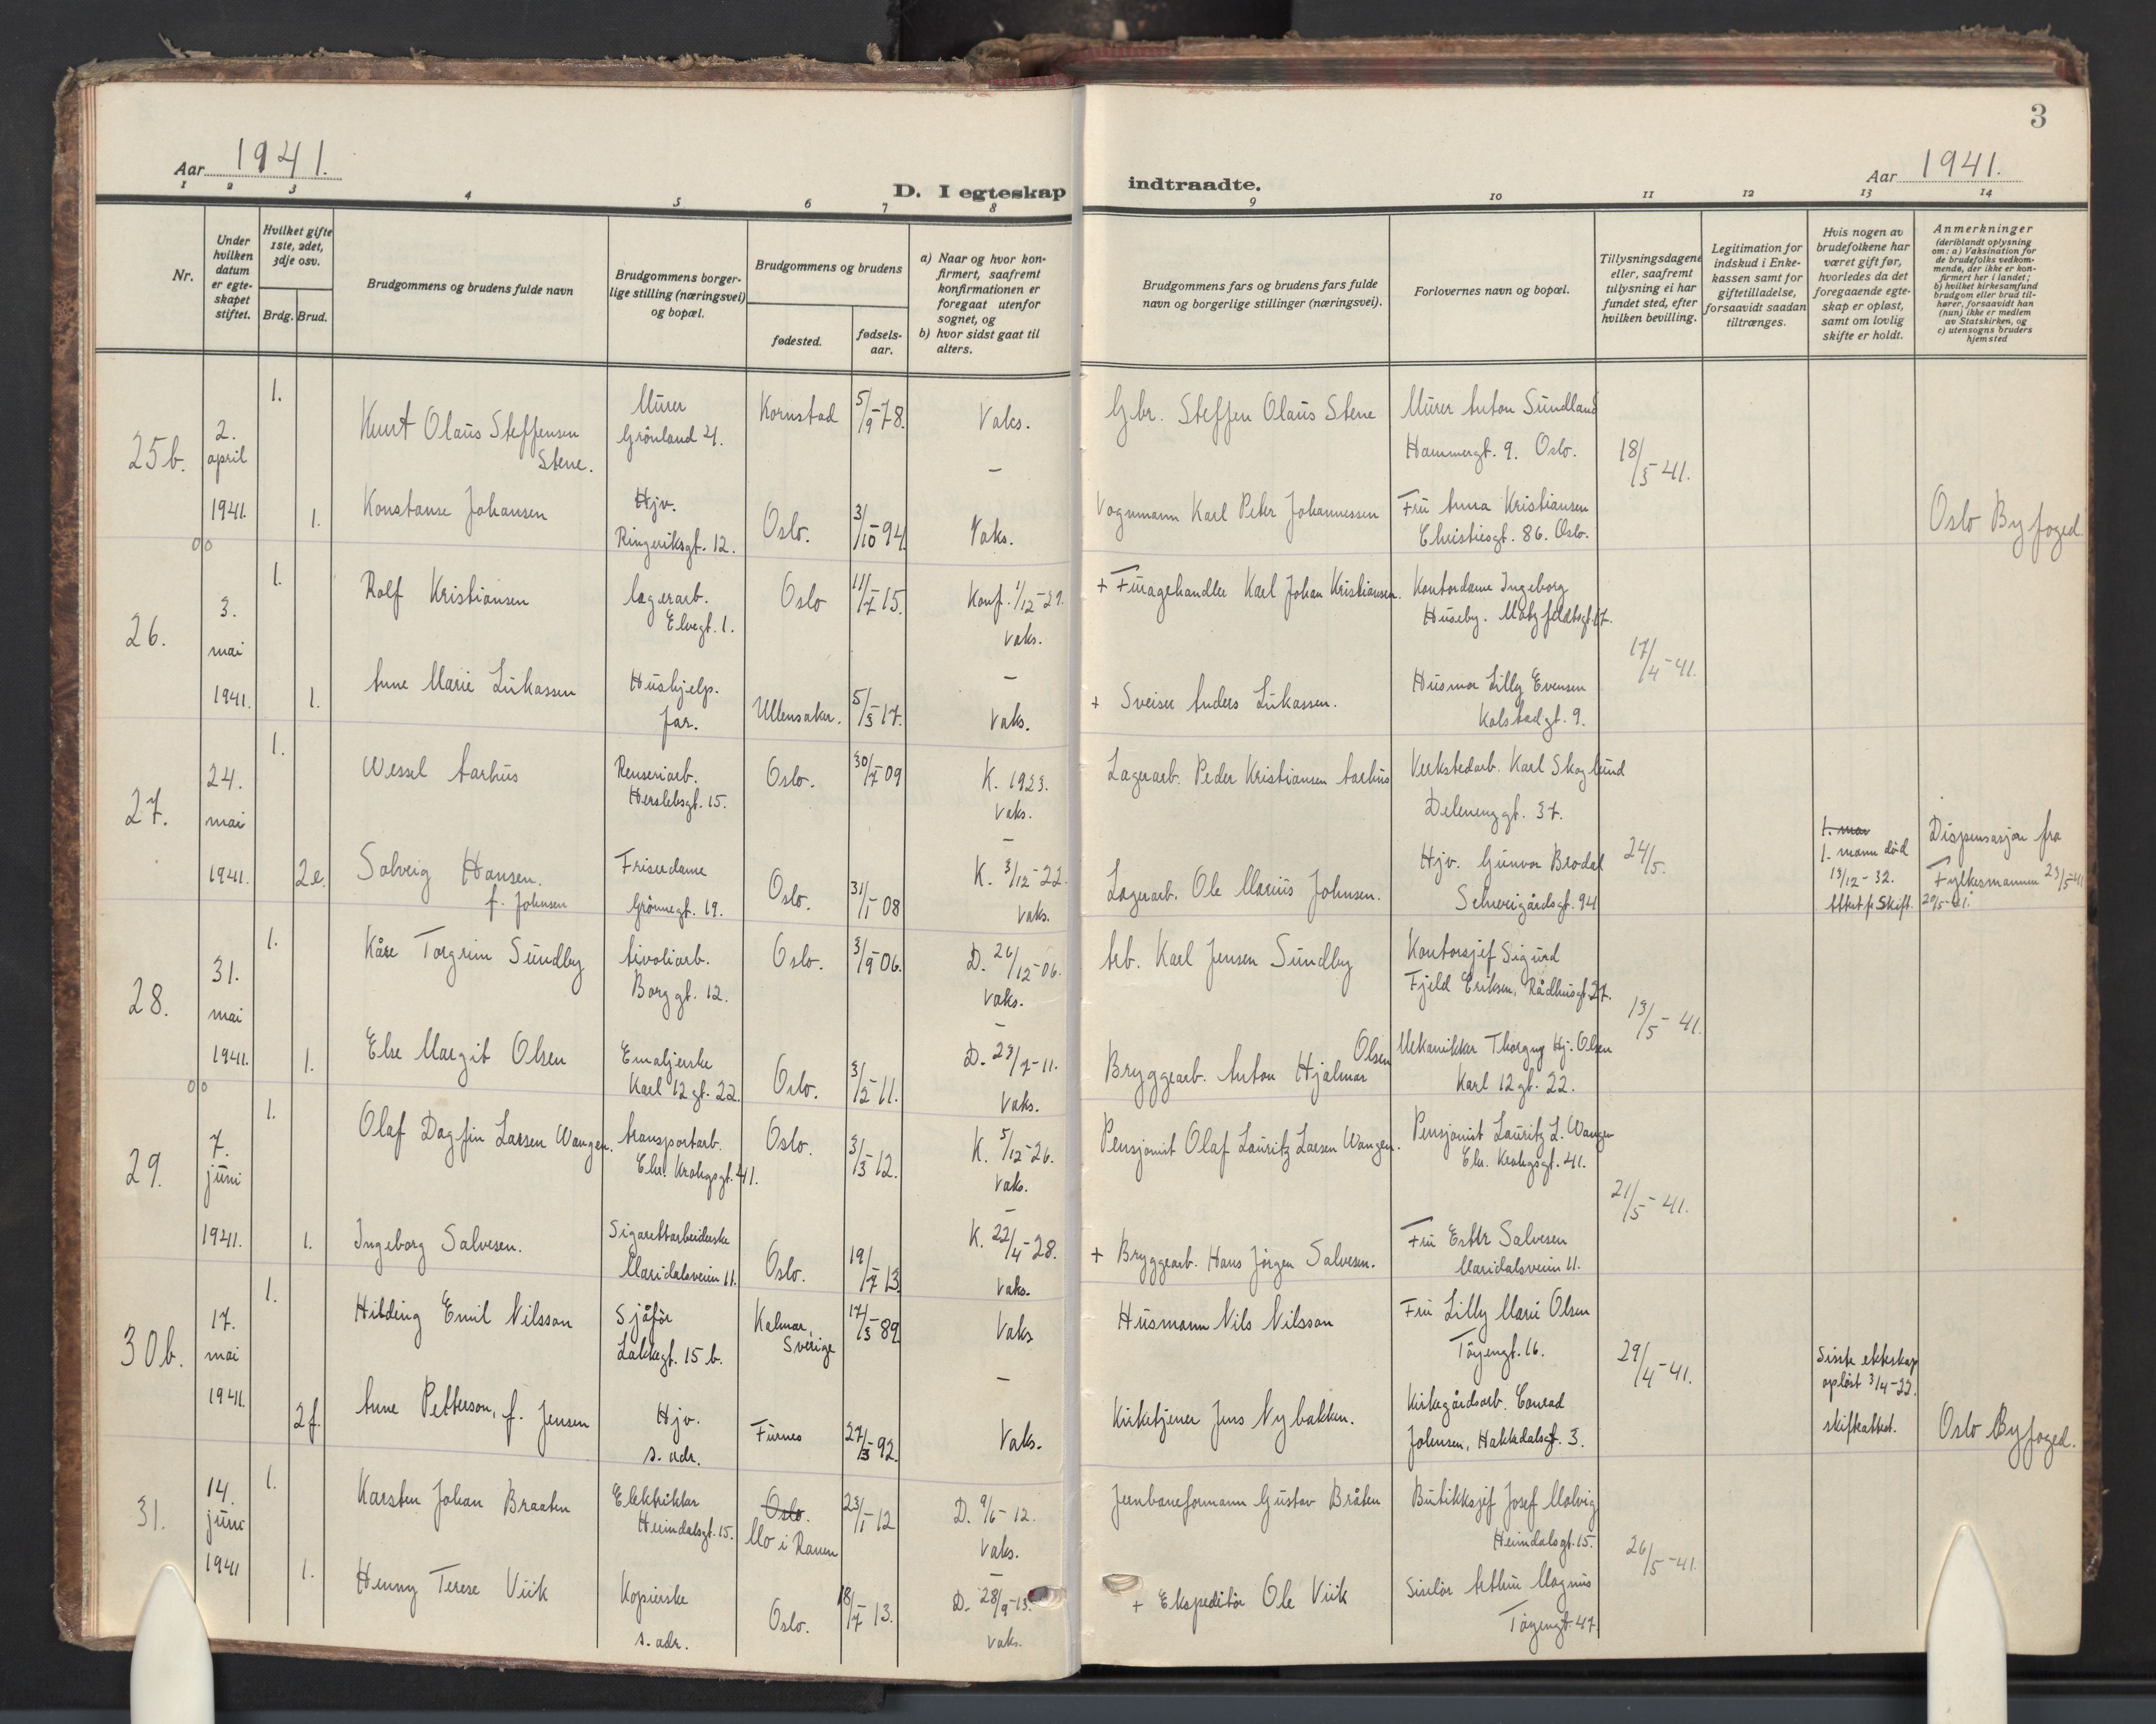 3
Aar 1941.
D. I egteskap
indtraadte.
Aar 1941.
1 2 3 4 5 6 7 8 9 10 11 12 13 14
Nr.
Under hvilken datum er egteskapet stiftet.
Hvilket gifte 1ste, 2det, 3dje osv.
Brdg. Brud.
Brudgommens og brudens fulde navn
Brudgommens borgerlige stilling (næringsvei) og bopæl.
Brudgommens og brudens
fødested.
fødselsaar.
a) Naar og hvor konfirmert, saafremt konfirmationen er foregaat utenfor sognet, og
b) hvor sidst gaat til alters.
Brudgommens fars og brudens fars fulde navn og borgerlige stillinger (næringsvei).
Forlovernes navn og bopæl.
Tillysningsdagene eller, saafremt tillysning ei har fundet sted, efter hvilken bevilling.
Legitimation for indskud i Enkekassen samt for giftetilladelse, forsaavidt saadan tiltrænges.
Hvis nogen av brudefolkene har været gift før, hvorledes da det foregaaende egteskap er opløst, samt om lovlig skifte er holdt.
Anmerkninger
(deriblandt oplysning om: a) Vaksination for de brudefolks vedkommende, der ikke er konfirmert her i landet; b) hvilket kirkesamfund brudgom eller brud tilhører, forsaavidt han (hun) ikke er medlem av Statskirken, og c) utensogns bruders hjemsted
25b. 2. april 1941.
1. Knut Olaus Steffensen Stene. Murer Grönland 4. Kornstad 5/9-78. Vaks. Gbr. Steffen Olaus Stene Murer Anton Sundland Hammergt. 9. Oslo. 18/3-41.
1. Konstanse Johansen Hjv. Ringeriksgt. 12. Oslo. 3/10 94 Vaks. Vognmann Karl Peter Johannessen Fru Anna Kristiansen Christiesgt. 86. Oslo. Oslo Byfoged.
26. 3. mai 1941.
1. Rolf Kristiansen lagerarb. Elvegt. 1. Oslo 11/7-15. Konf. 1/12-29. Vaks. + Furagehandler Karl Johan Kristiansen. Kontordame Ingeborg Huseby. Motzfeldtsgt. 17. 17/4-41.
1. Anne Marie Lukassen Hushjelp. Jar. Ullensaker. 5/3 17. Vaks. + Sveiser Anders Lukassen. Husmor Lilly Evensen Kolstadgt. 9.
27. 24. mai 1941.
1. Wessel Aarhus Renseriarb. Herslebsgt. 15. Oslo. 30/7-09 K. 1923. Vaks. Lagerarb. Peder Kristiansen Aarhus Verkstedarb. Karl Skoglund Delenenggt. 37. 24/5.
2e. Solveig Hansen. f. Johnsen Friserdame Grönnegt. 19. Oslo. 31/1-08 K. 3/12-22. Vaks. Lagerarb. Ole Marius Johnsen. Hjv. Gunvor Brodal Schweigårdsgt. 94 1. mann död 13/12-32. Attest fr Skift. 20/5-41. Dispensasjon fra Fylkesmannen 23/5-41
28. 31. mai 1941.
1. Kåre Torgrim Sundby tivoliarb. Borggt. 12. Oslo. 3/9-06. D. 26/12-06. Vaks. Arb. Karl Jensen Sundby Kontorsjef Sigurd Fjeld Eriksen, Rådhusgt. 27. 13/5-41.
1. Else Margit Olsen Emaljerske Karl 12 gt. 22. Oslo. 3/5 11. D. 23/7-11. Vaks. Bryggearb. Anton Hjalmar Olsen Mekanikker Thorgny Hj. Olsen Karl 12 gt. 22.
29. 7. juni 1941.
1. Olaf Dagfin Larsen Wangen. transportarb. Chr. Krohgsgt. 41. Oslo. 3/3-12. K. 5/12-26. Vaks. Pensjonist Olaf Lauritz Larsen Wangen. Pensjonist Lauritz L. Wangen Chr. Krohgsgt. 41. 21/5-41.
1. Ingeborg Salvesen. Sigarettarbeiderske Maridalsveien 11. Oslo. 19/7 13 K. 22/4-28. Vaks. + Bryggearb. Hans Jörgen Salvesen. Fru Esther Salvesen Maridalsveien 11.
30b. 17. mai 1941.
1. Hilding Emil Nilsson Sjåför Lakkegt. 15 b. Kalmar, Sverige 17/3-89 Vaks Husmann Nils Nilsson Fru Lilly Marie Olsen Töyengt. 16. 29/4-41.
2f. Anne Petterson, f. Jensen Hjv. s. adr. Furnes 27/3 92. Vaks. Kirketjener Jens Nybakken. Kirkegårdsarb. Conrad Johnsen, Hakkedalsgt. 3. Siste ekteskap oplöst 3/4-22. skifteattest. Oslo Byfoged.
31. 14. juni 1941
1. Karsten Johan Braaten Elektriker Heimdalsgt. 15. Oslo. Mo i Ranen 23/1-12 D. 9/6-12. Vaks. Jernbaneformann Gustav Bråten Butikksjef Josef Molvig Heimdalsgt. 15. 26/5-41.
1. Henny Terese Viik Kopierske s. adr. Oslo. 18/7-13. D. 28/9-13. Vaks. + Ekspeditör Ole Viik Siselör Arthur Magnus Töyengt. 47.